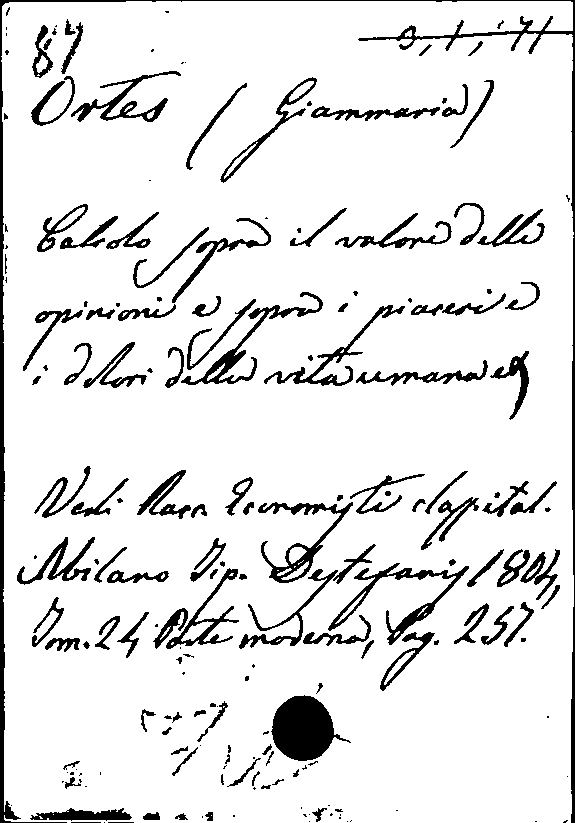 87 3, 1, '71
Ortes (Giammaria)
Calcolo sopra il valore delle
opinioni e sopra i piaceri e
i dolori della vita umana
Vedi Racc. Economisti class. ital.
Milano Tip. Destefanis 1804,
Tom. 24 Parte moderna, Pag. 257.